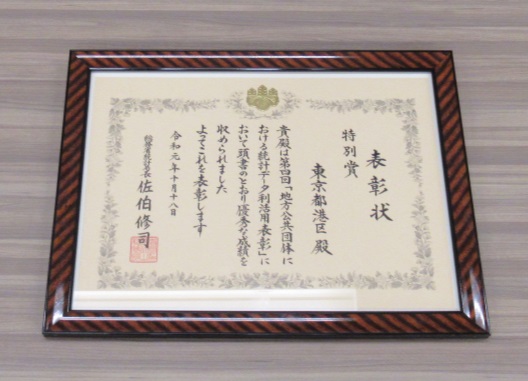 表彰状
特別賞
東京都港区 殿
貴殿は第四回「地方公共団体に
おける統計データ利活用表彰」に
おいて頭書のとおり優秀な成績を
収められました
よってこれを表彰します
令和元年十月十八日
総務省統計局長 佐伯修司